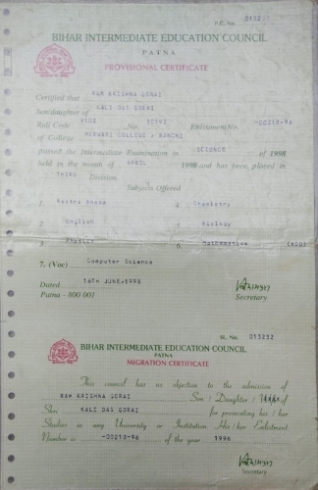 P.C. No. 0132
BIHAR INTERMEDIATE EDUCATION COUNCIL
PATNA
PROVISIONAL CERTIFICATE
Certified that RAM KRISHNA GORAI
Son/daughter of KALI DAS GORAI
Roll Code No. 10192 Enlistment No -00218-96
of College MARWARI COLLEGE , RANCHI
passed the Intermediate Examination in SCIENCE of 1998
held in the month of APRIL 1998 and has been placed in
THIRD Division
Subjects Offered
1. Rastra Bhasa 4. Chemistry
2. English 5. Biology
3. Physics 6. Mathematics (ADD)
7. (Voc) Computer Science
Dated 16TH JUNE,1998
Patna - 800 001 Secretary
SL. No. 013232
BIHAR INTERMEDIATE EDUCATION COUNCIL
PATNA
MIGRATION CERTIFICATE
This council has no objection to the admission of
RAM KRISHNA GORAI Son / Daughter / of
Shri KALI DAS GORAI for prosecuting his / her
Studies in any University or Institution His / her Enlistment
Number is -00218-96 of the year 1996
Secretary